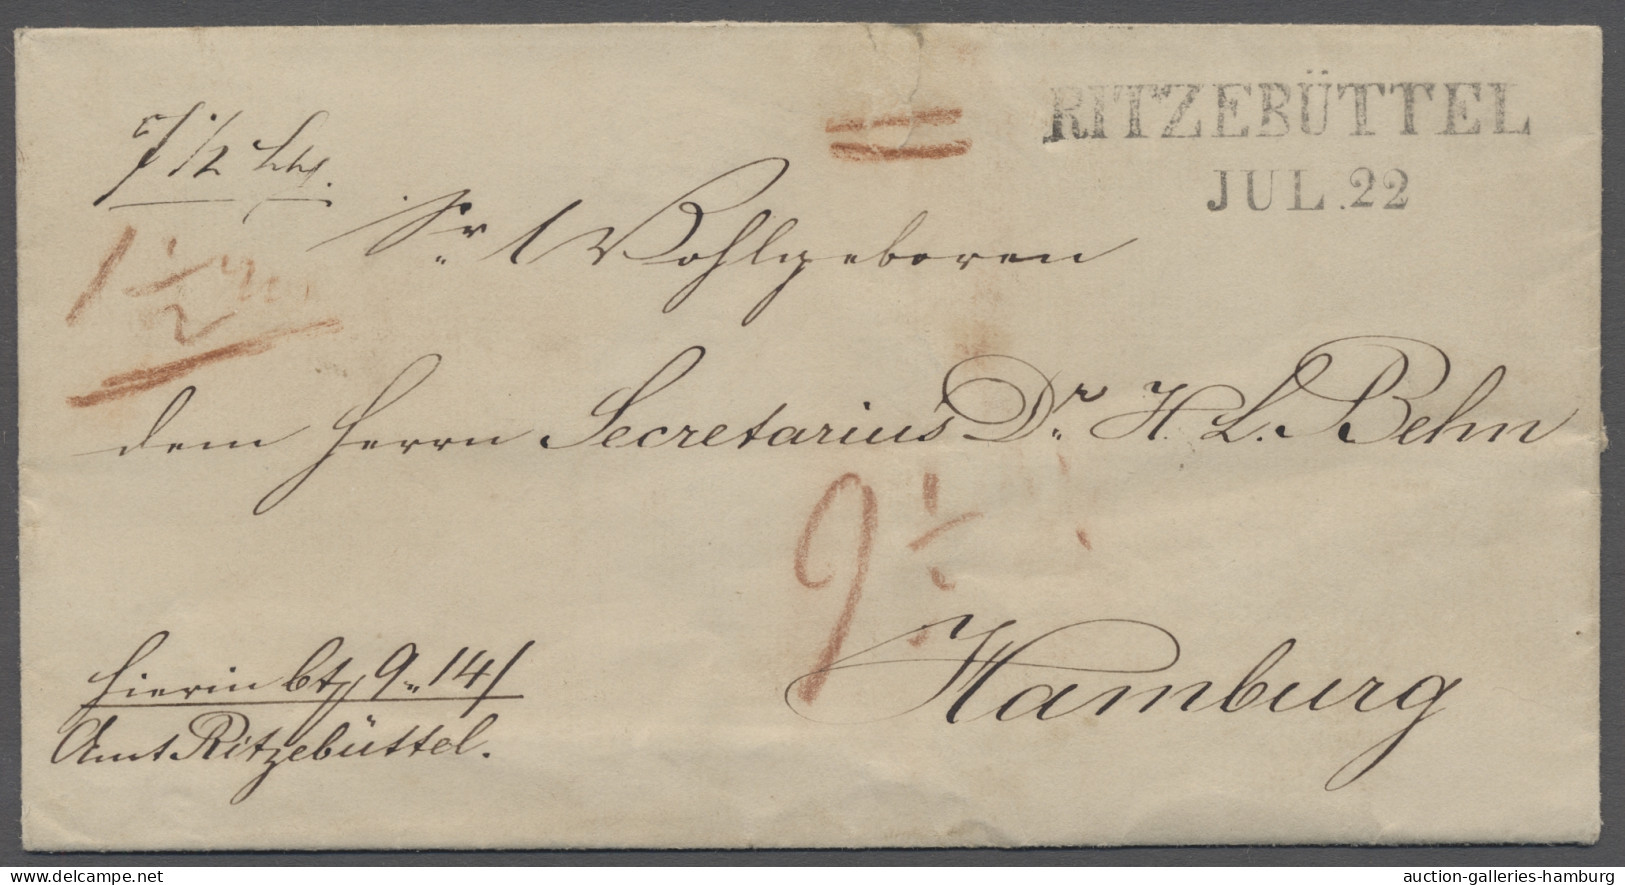 RITZEBÜTTEL
JUL.22
7 1/2
1 1/2
Sr. Wohlgeboren
dem Herrn Secretarius Dr. H. L. Behn
9 1/2
Hamburg
hierin 9„14/
Amt Ritzebüttel.
delcampe.net
auction-galleries-hamburg